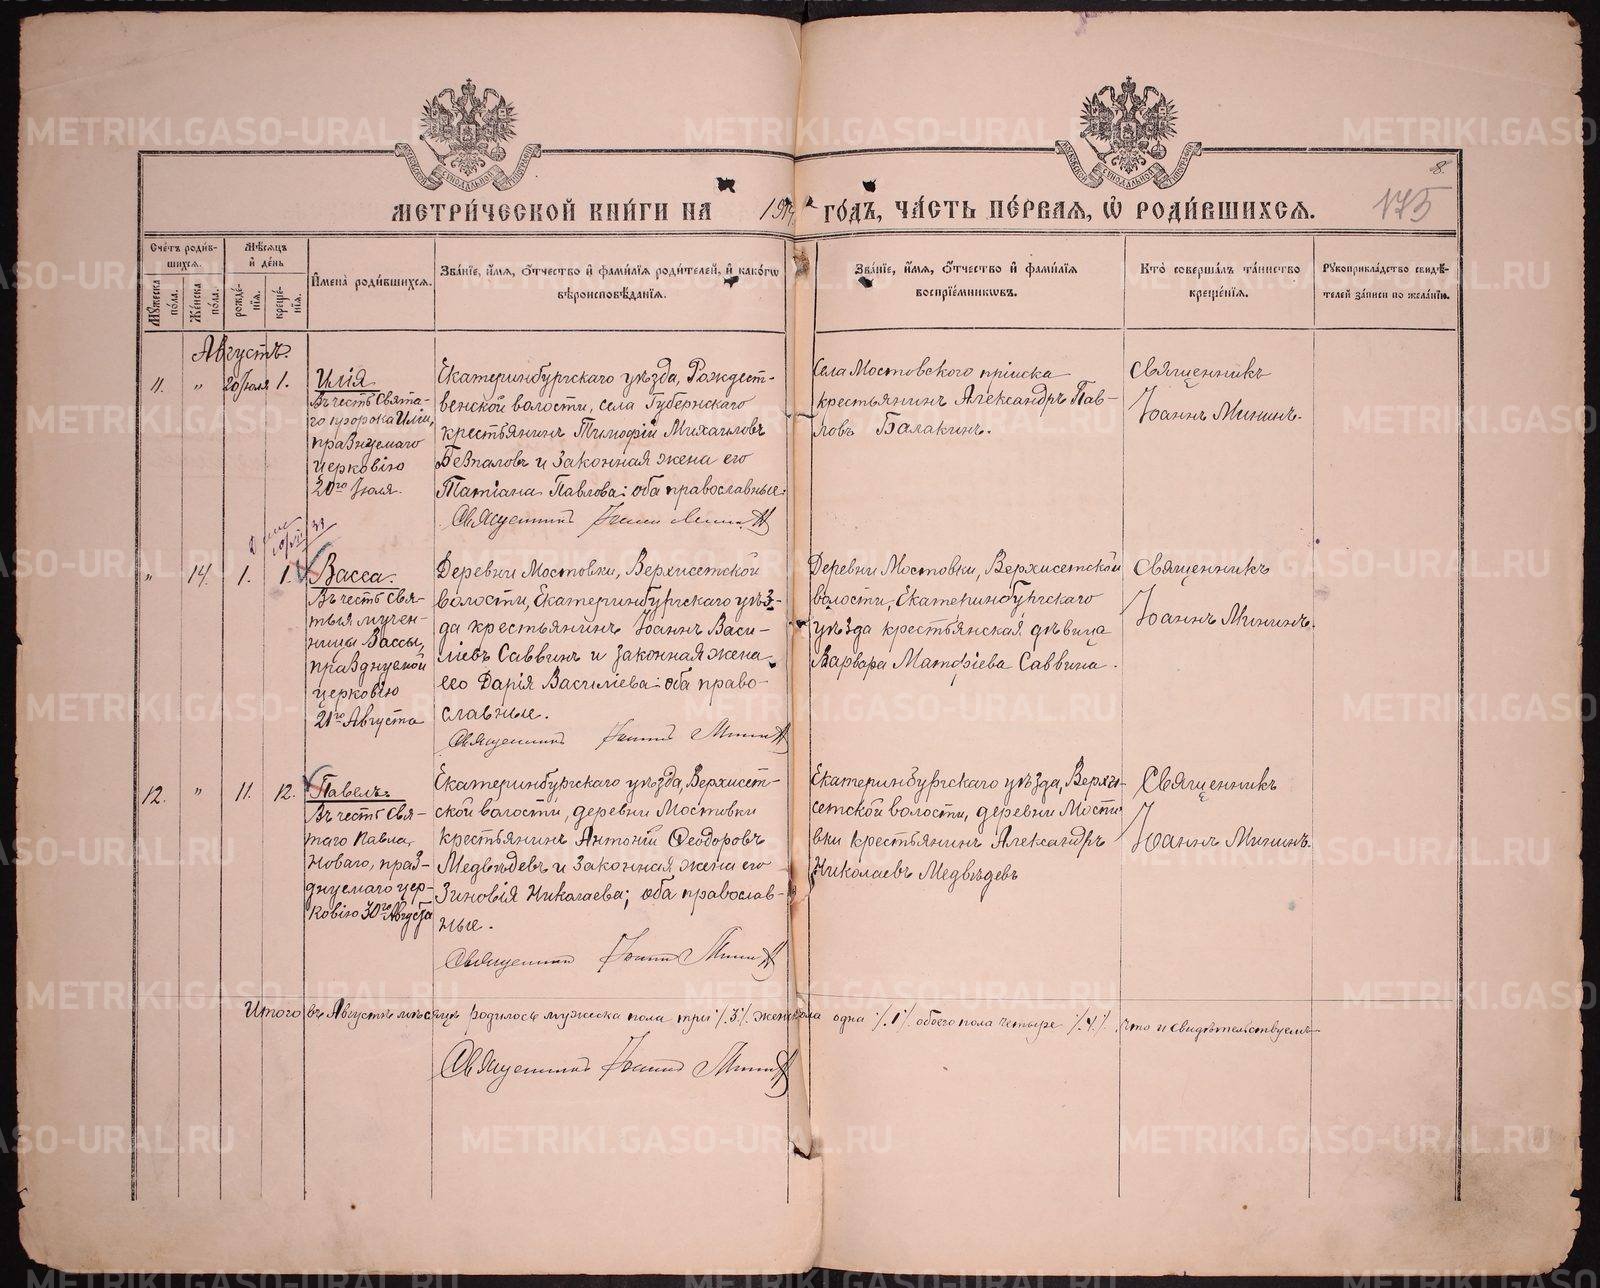 МЕТРИ́ЧЕСКОЙ КНИ́ГИ НА 1914 ГО́ДЪ, ЧА́СТЬ ПЕ́РВАЯ, Ѡ҆ РОДИ́ВШИХСЯ.
8.
175
Сче́тъ роди́в-
шихся.
Му́жеска по́ла.
Же́нска по́ла.
Мѣ́сяцъ
и҆ де́нь
рожде́-
нія.
креще́-
нія.
И҆мена̀ роди́вшихся.
Зва́ніе, и҆́мя, ѻ҆́тчество и҆ фами́лія роди́телей, и҆ како́гѡ
вѣроисповѣ́данія.
Зва́ніе, и҆́мя, ѻ҆́тчество и҆ фами́лія
воспріе́мникѡвъ.
Кто̀ соверша́лъ та́инство
креще́нія.
Рꙋкоприкла́дство свидѣ́-
телей за́писи по жела́нію.
Августъ.
11.
"
20 Іюля
1.
Илія
Въ честь Свята-
го пророка Иліи,
празнуемаго
церковію
20го Іюля.
Екатеринбургскаго уѣзда, Рождест-
венской волости, села Губернскаго
крестьянинъ Тимофій Михаиловъ
Безпаловъ и законная жена его
Татіана Павлова: оба православные.
Священникъ Іоаннъ Мининъ
Села Мостовского пріиска
крестьянинъ Александръ Пав-
ловъ Балакинъ.
Священникъ
Іоаннъ Мининъ.
"
14.
1.
1.
Васса.
Въ честь свя-
тыя мучен-
ницы Вассы,
празднуемой
церковію
21го Августа
Деревни Мостовки, Верхисетской
волости, Екатеринбургскаго уѣз-
да крестьянинъ Іоаннъ Васи-
ліевъ Саввинъ и законная жена
его Дарія Василіева: оба право-
славные.
Священникъ Іоаннъ Мининъ
Деревни Мостовки, Верхисетской
волости, Екатеринбургскаго
уѣзда крестьянская дѣвица
Варвара Матфіева Саввина.
Священникъ
Іоаннъ Мининъ.
12.
"
11.
12.
Павелъ.
Въ честь свя-
таго Павла,
Новаго, праз-
днуемаго цер-
ковію 30го Августа
Екатеринбургскаго уѣзда, Верхисет-
ской волости, деревни Мостовки
крестьянинъ Антоній Феодоровъ
Медвѣдевъ и законная жена его
Зиновія Николаева; оба православ-
ные.
Священникъ Іоаннъ Мининъ
Екатеринбургскаго уѣзда, Верхи-
сетской волости, деревни Мосто
вки крестьянинъ Александръ
Николаевъ Медвѣдевъ
Священникъ
Іоаннъ Мининъ.
Итого въ Августѣ мѣсяцѣ родилось мужеска пола три ·/.3·/. женска одна ·/.1·/. обоего пола четыре ·/.4·/. Что и свидѣтельствуемъ
Священникъ Іоаннъ Мининъ
METRIKI.GASO-URAL.RU